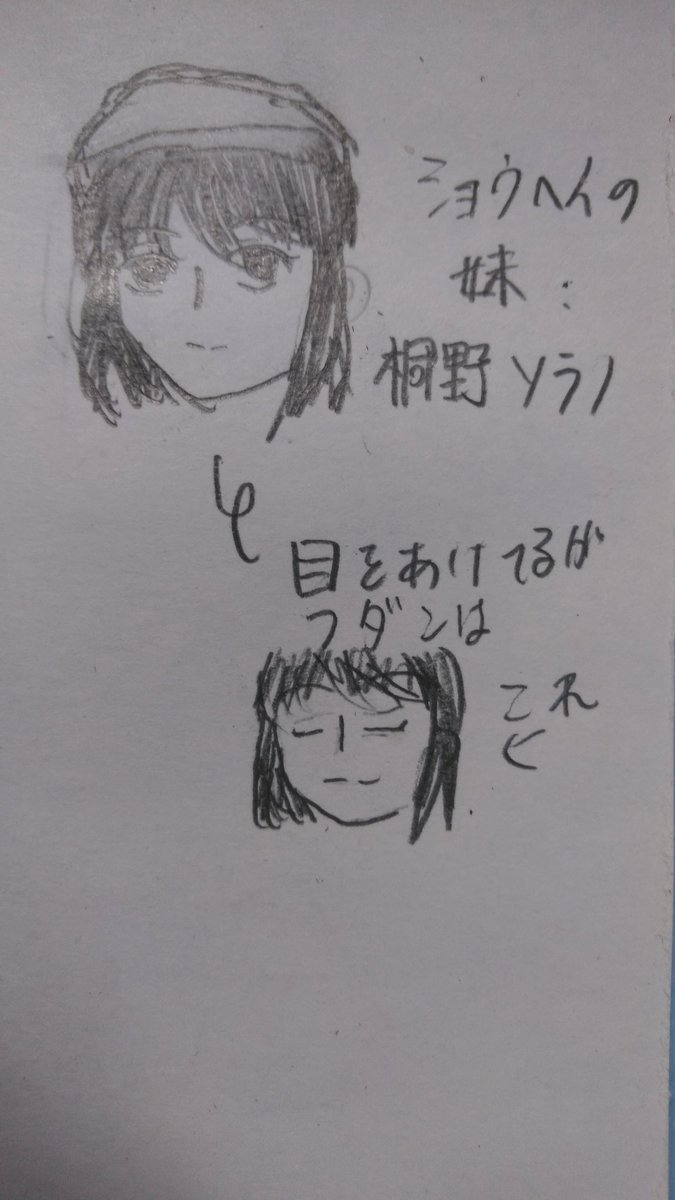 ショウヘイの
妹：
桐野ソラノ
目をあけてるが
フダンは
これ